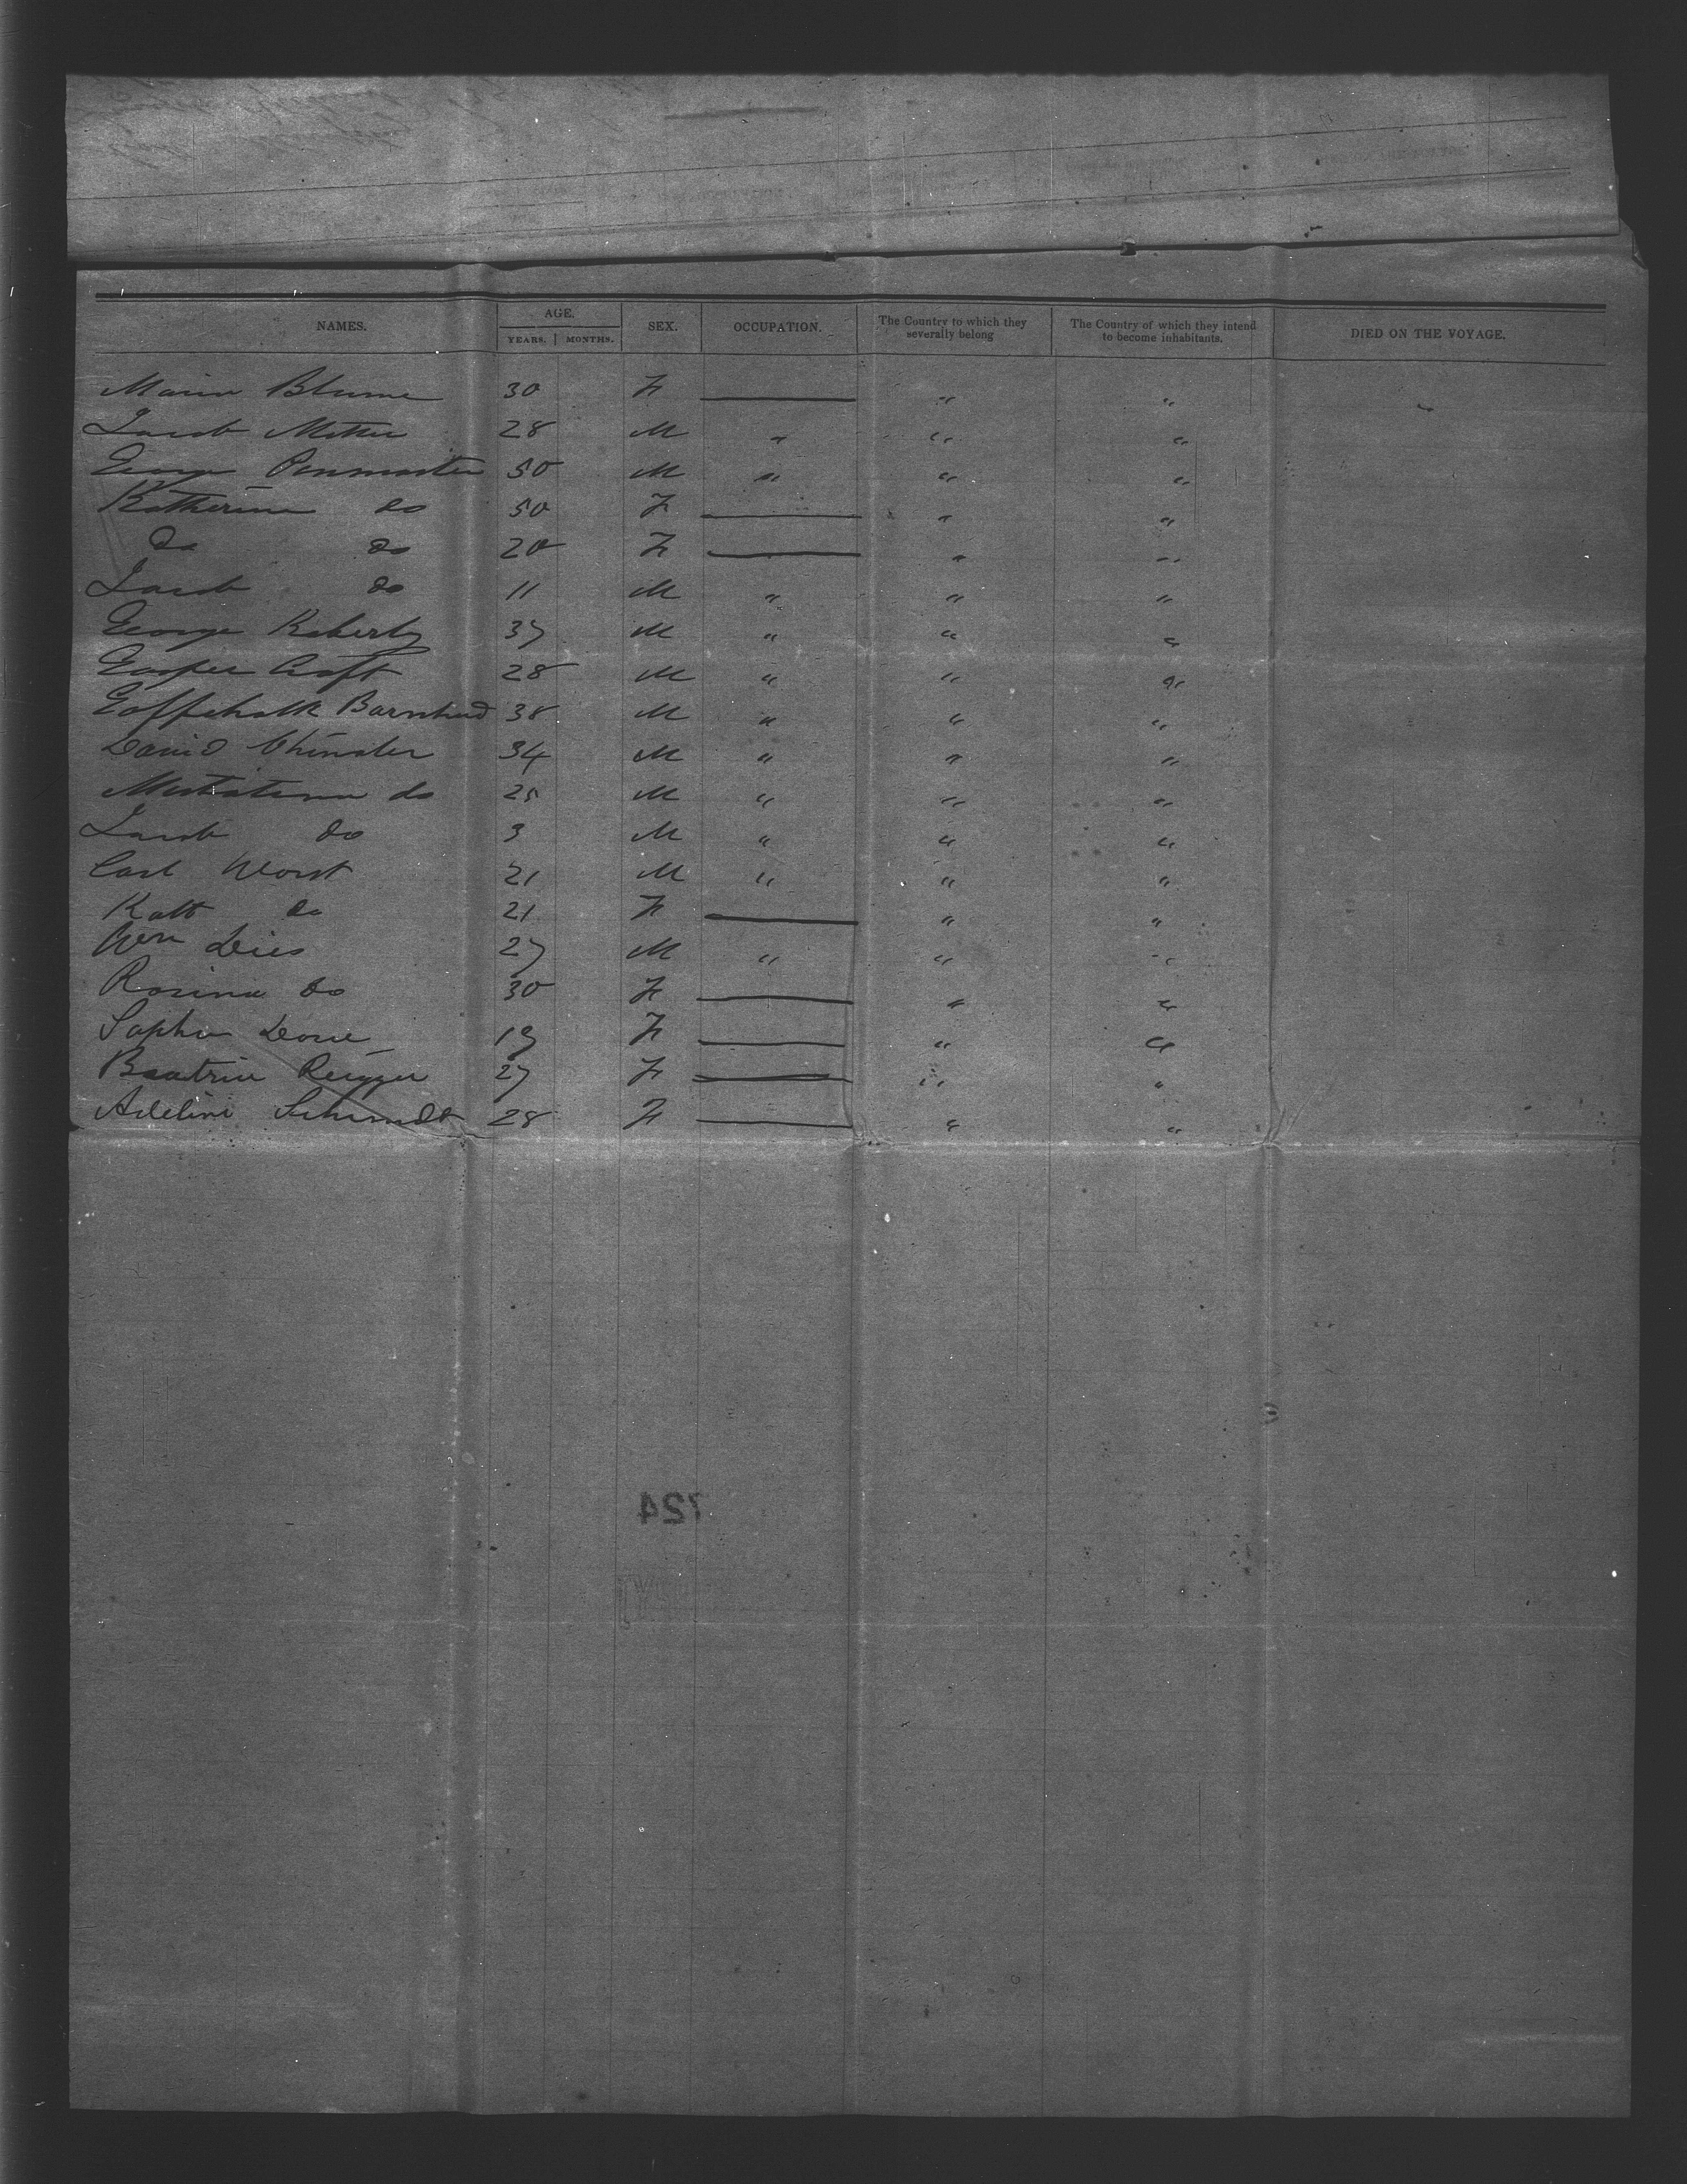 NAMES. AGE. YEARS. MONTHS. SEX. OCCUPATION. The Country to which they severally belong The Country of which they intend to become inhabitants. DIED ON THE VOYAGE.
Maria Blume 30 F — " "
Jacob 28 M " " "
George Penmaster 50 M " " "
Katherine do 50 F — " "
Do do 20 F — " "
Jacob do 11 M " " "
George 37 M " " "
Casper Croft 28 M " " "
38 M " " "
David 34 M " " "
do 25 M " " "
Jacob do 3 M " " "
Carl Worst 21 M " " "
Katt do 21 F — " "
Wm Dies 27 M " " "
Rosina do 30 F — " "
Sophie 19 F — " "
27 F — " "
Adeline Schmidt 28 F — " "
724